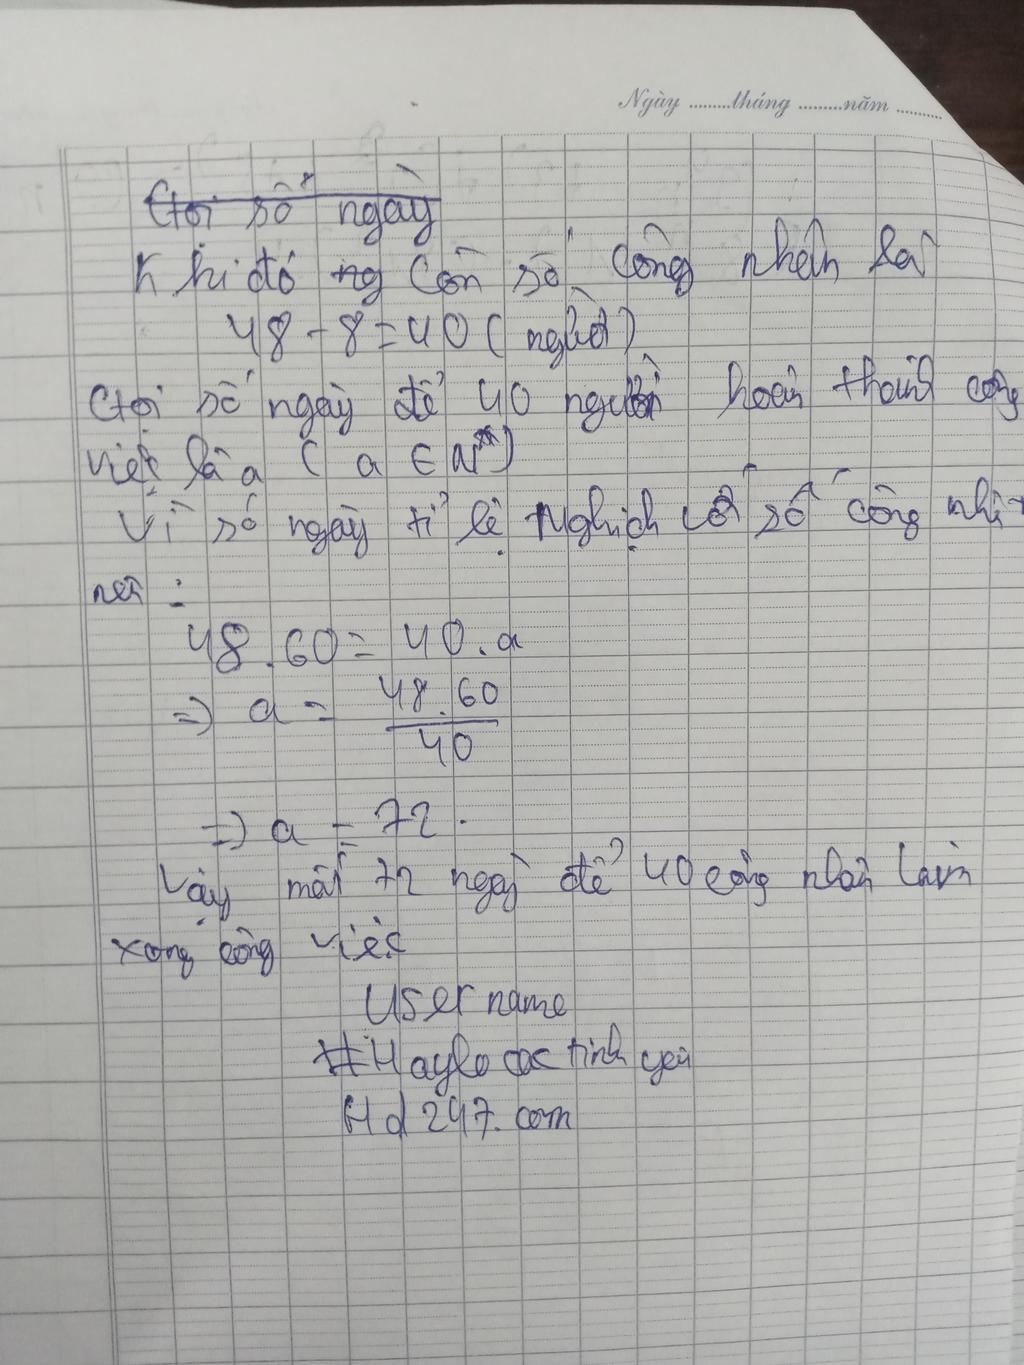 Ngày .........tháng .........năm .........
Gọi số ngày
Khi đó ng còn số công nhân là
48 - 8 = 40 (người)
Gọi số ngày để 40 người hoàn thành công
việc là a ( a ∈ N*)
Vì số ngày tỉ lệ nghịch với số công nhân
nên :
48.60 = 40.a
=> a = 48.60
40
=> a = 72.
Vậy mất 72 ngày để 40 công nhân làm
xong công việc
User name
#Hayło các tình yêu
Hd247.com